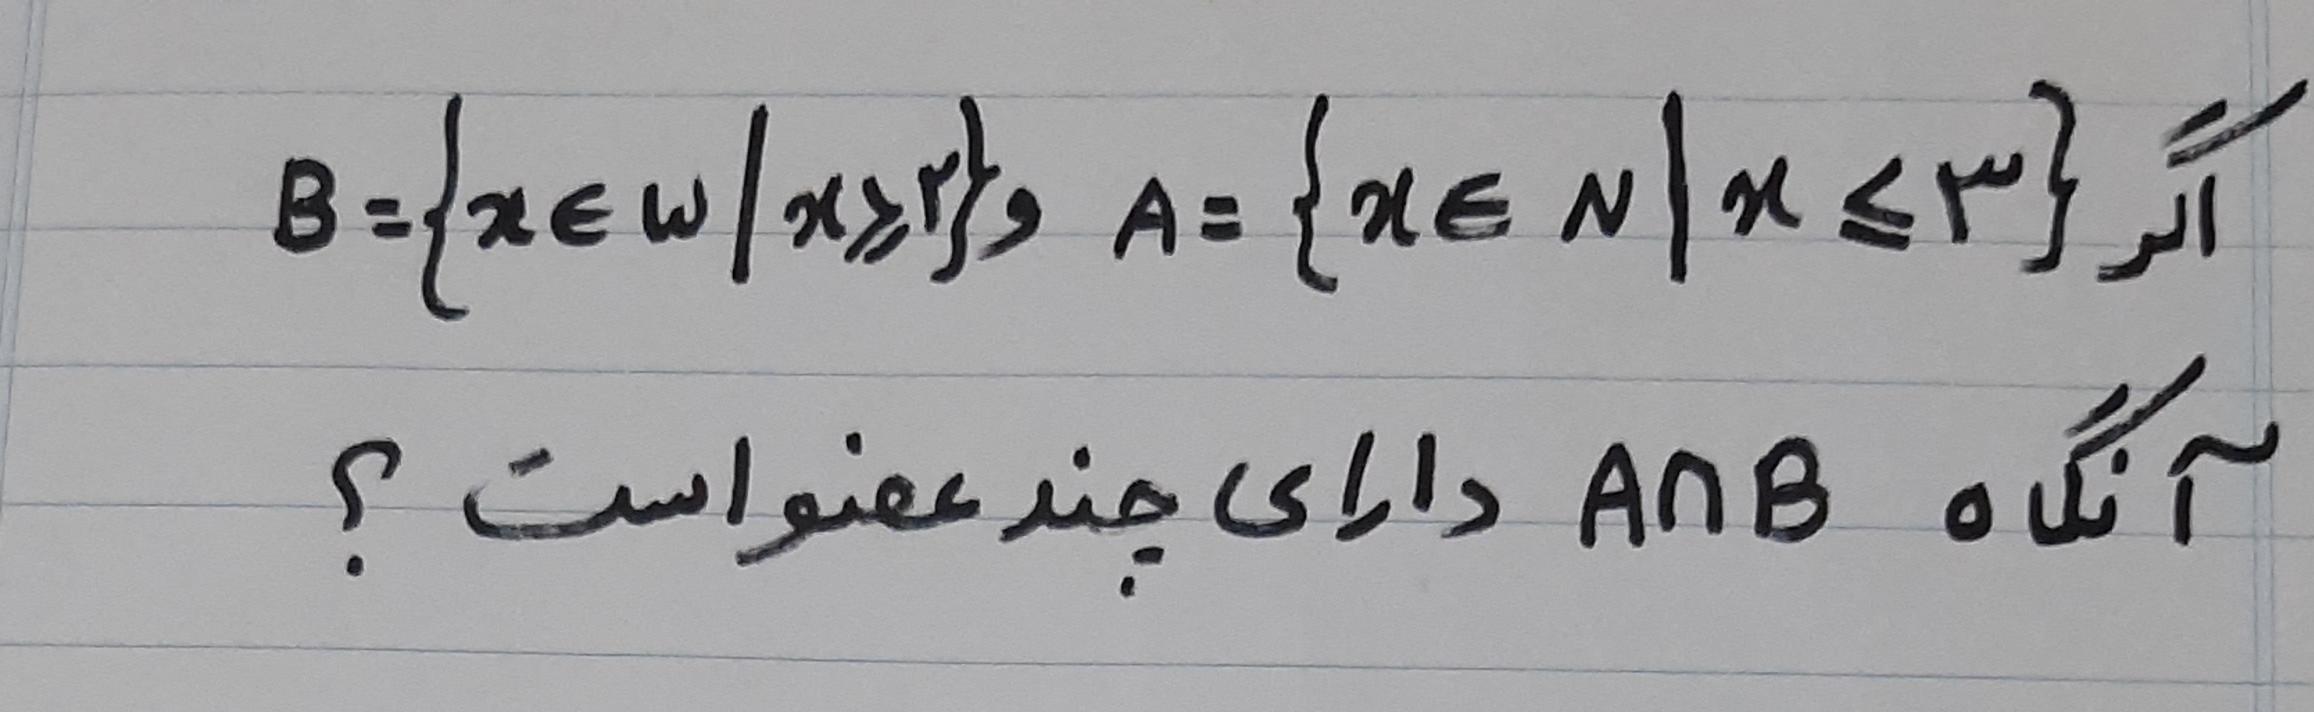 اگر A = {x ∈ N | x ≤ ۳} و B = {x ∈ W | x ≥ ۲}
آنگاه A ∩ B دارای چند عضو است ؟